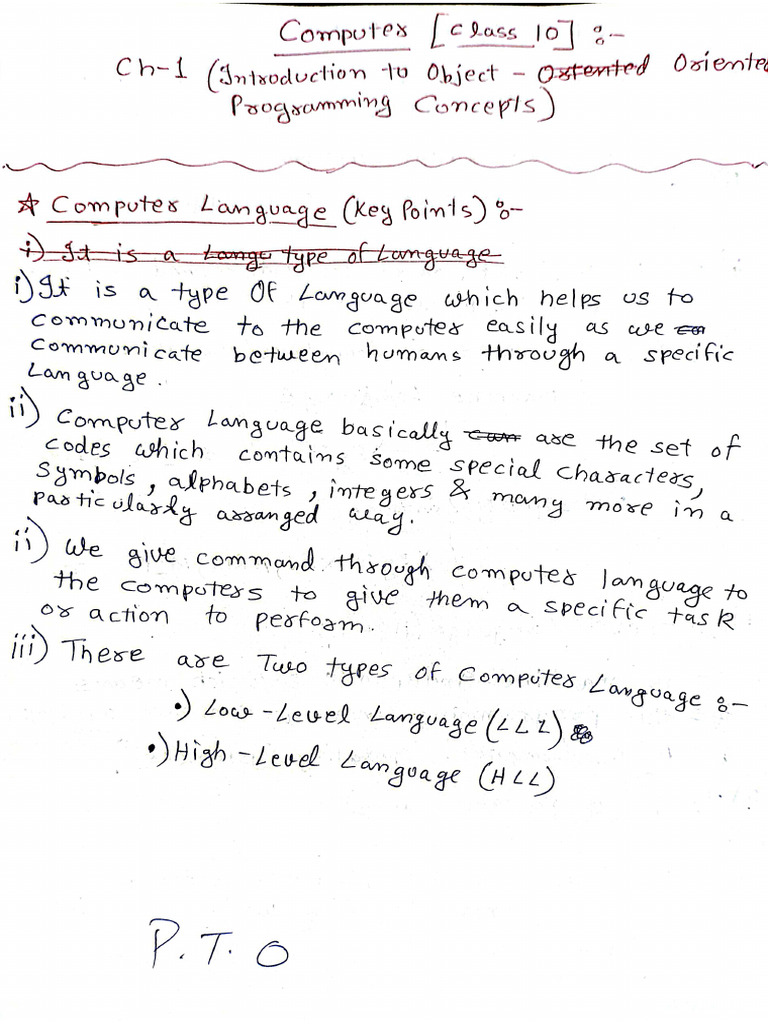 Computer [Class 10] :-
Ch-1 (Introduction to Object - Ostented Oriented
Programming Concepts)
☆ Computer Language (Key Points) :-
i) It is a Langu type of Language
i) It is a type of Language which helps us to
communicate to the computer easily as we can
communicate between humans through a specific
Language.
ii) Computer Language basically can are the set of
codes which contains some special characters,
symbols, alphabets, integers & many more in a
particularly arranged way.
ii) We give command through computer language to
the computers to give them a specific task
or action to perform.
iii) There are Two types of Computer Language :-
•) Low-Level Language (LLL)
•) High-Level Language (HLL)
P.T.O